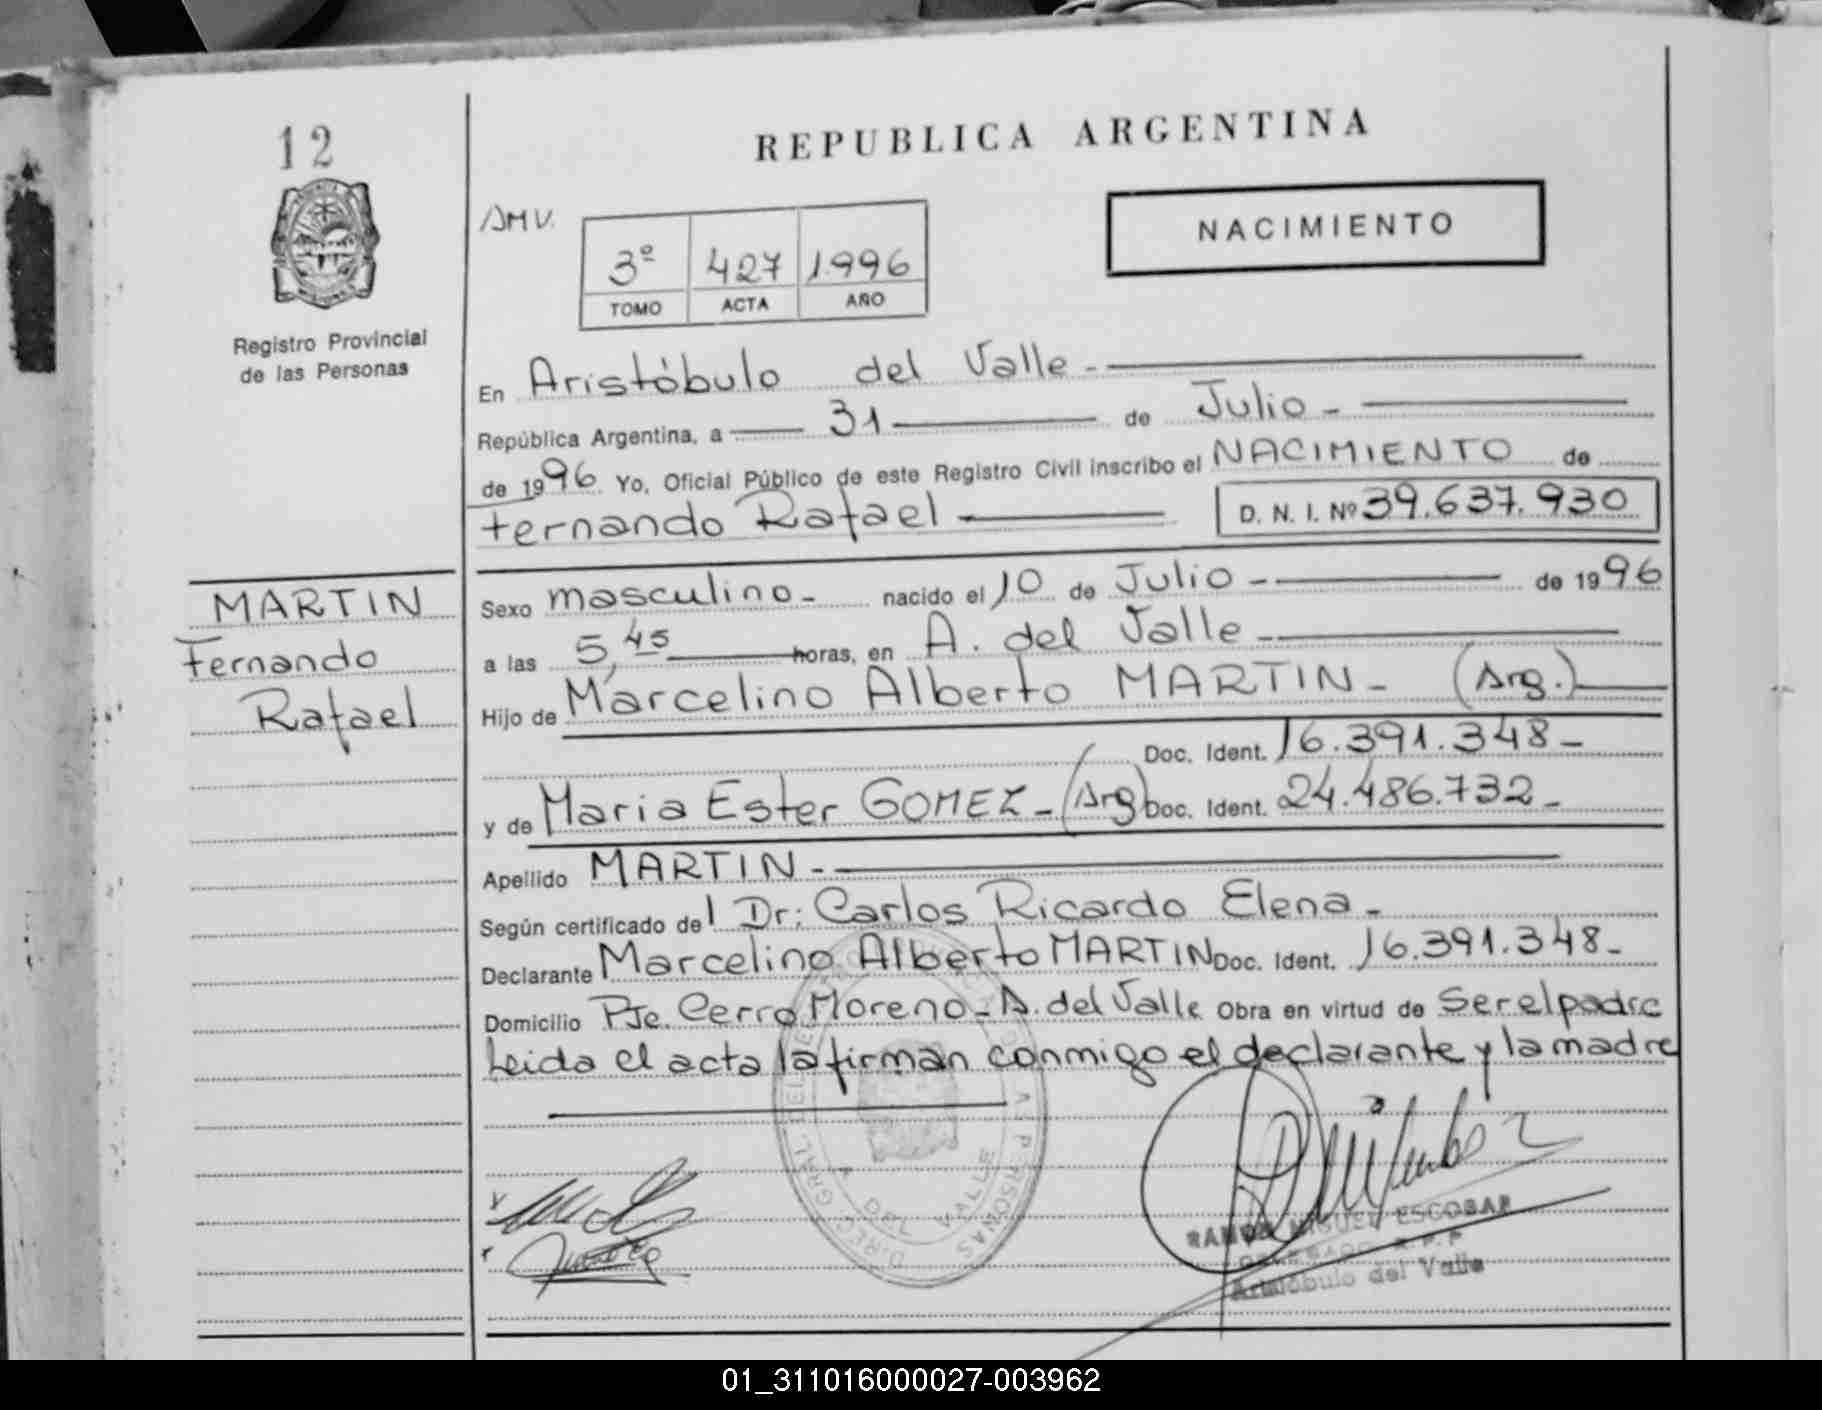 12
REPUBLICA ARGENTINA
AMV.
NACIMIENTO
3º 427 1.996
TOMO ACTA AÑO
Registro Provincial
de las Personas
En Aristóbulo del Valle -
República Argentina, a 31 de Julio -
de 1996 Yo, Oficial Público de este Registro Civil inscribo el NACIMIENTO de
Fernando Rafael D. N. I. Nº 39.637.930
MARTIN
Fernando
Rafael
Sexo masculino - nacido el 10 de Julio - de 1996
a las 5,45 horas, en A. del Valle -
Hijo de Marcelino Alberto MARTIN - (Arg.)
Doc. Ident. 16.391.348 -
y de Maria Ester GOMEZ - (Arg) Doc. Ident. 24.486.732 -
Apellido MARTIN -
Según certificado del Dr: Carlos Ricardo Elena -
Declarante Marcelino Alberto MARTIN Doc. Ident. 16.391.348 -
Domicilio Pje. Cerro Moreno - A. del Valle Obra en virtud de Ser el padre
Leida el acta la firman conmigo el declarante y la madre
A. DEL VALLE
MIGUEL ESCOBAR
Aristóbulo del Valle
01_311016000027-003962